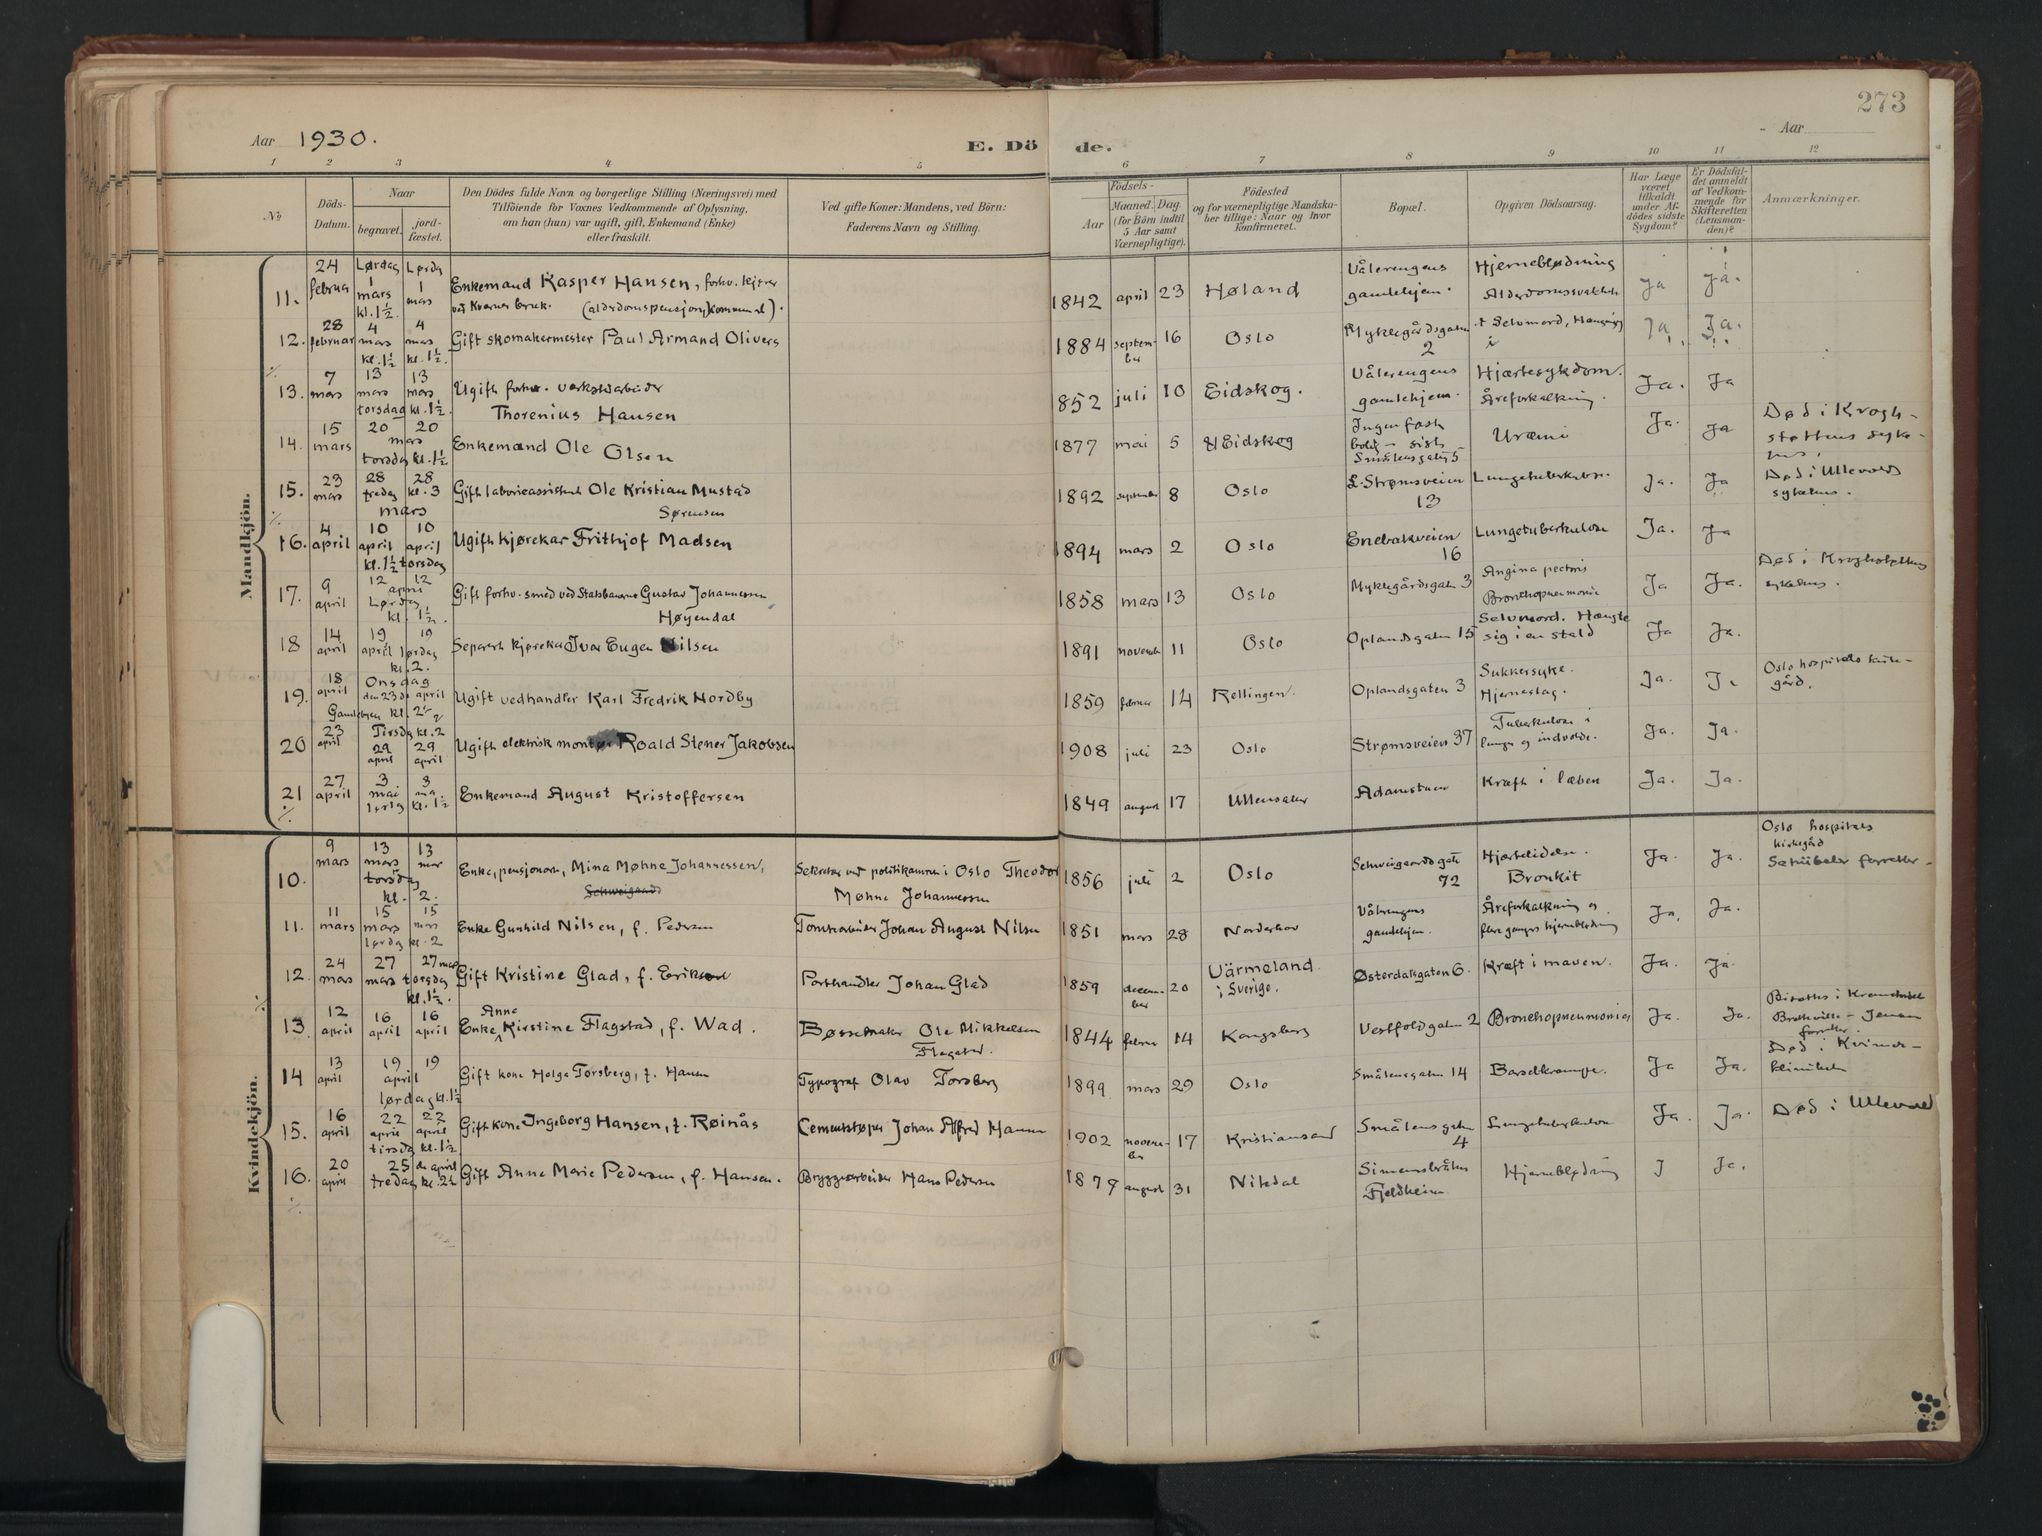 273
Aar 1930.
E. Dö de.
Aar
1 2 3 4 5 6 7 8 9 10 11 12
No
Döds-Datum.
Naar
begravet.
jord-fæstet.
Den Dödes fulde Navn og borgerlige Stilling (Næringsvei) med
Tilföiende for Voxnes Vedkommende af Oplysning,
om han (hun) var ugift, gift, Enkemand (Enke)
eller fraskilt.
Ved gifte Koner: Mandens, ved Börn:
Faderens Navn og Stilling.
Födsels-
Aar
Maaned. Dag.
(for Börn indtil
5 Aar samt
Værnepligtige).
Födested
og for værnepligtige Mandska-
ber tillige: Naar og hvor
Konfirmeret.
Bopæl.
Opgiven Dödsaarsag.
Har Læge
været
tilkaldt
under Af-
dödes sidste
Sygdom?
Er Dödsfal-
det anmeldt
af Vedkom-
mende for
Skifteretten
(Lensman-
den)?
Anmærkninger.
Mandkjön.
11. 24 februa Lørdag 1 mars kl. 1½ Lørda 1 mars Enkemand Kasper Hansen, forhv. kjører
ved Kværner bruk. (alderdomspensjon, kommunal).
1842 april 23 Høland Vålerengens gamlehjem. Hjerneblødning Alderdomssvakhet Ja Ja.
12. 28 februar 4 mars kl. 1½ 4 mars kl. 1½ Gift skomakermester Paul Armand Olivers
1884 septem-ber 16 Oslo Myklegårdsgaten 2 Selvmord, Ja Ja.
13. 7 mars 13 mars torsdag 13 mars kl. 1½ Ugift forhv. verkstedarbeider
Thorenius Hansen
852 juli 10 Eidskog. Vålerengens gamlehjem. Hjærtesykdom. Åreforkalkning. Ja. Ja
14. 15 mars 20 20 mars torsdag kl. 1½ Enkemand Ole Olsen
1877 mai 5 Eidskog Ingen fast bolig – sist Smålensgaten 5 Uræmi Ja. Ja Død i Krogh-støttens syke-hus.
15. 23 mars 28 fredag mars 28 kl. 3 Gift Ole Kristian Mustad
Sørensen
1892 september 8 Oslo Strømsveien 13 Lungetuberkulose. Ja. Ja Død i Ullevold sykehus.
16. 4 april 10 april 10 april kl. 1½ torsdag Ugift kjørekar Frithjof Madsen
1894 mars 2 Oslo Enebakveien 16 Lungetuberkulose Ja. Ja
17. 9 april 12 12 april Lørdag kl. 1½ Gift forhv. smed ved Statsbanerne Gustav Johannessen
Høyendal
1858 mars 13 Oslo Myklegårdsgaten 3 Angina pectoris Bronchopneumonie Ja Ja. Død i Kroghstøttens sykehus.
18 14 april 19 april 19 lørdag kl. 2. Separert kjørekar Ivar Eugen Nilsen
1891 november 11 Oslo Oplandsgaten 15 Selvmord. Hængte sig i en stald Ja Ja.
19. 18 april Onsdag den 23de april Gamlebyen kl. Ugift vedhandler Karl Fredrik Nordby
1859 februar 14 Rellingen. Oplandsgaten 3 Sukkersyke. Hjerneslag. Ja. Oslo hospitals kirke-gård.
20 23 april Tirsdag kl. 2 29 april 29 april Ugift elektrisk montør Roald Stener Jakobsen
1908 juli 23 Oslo Strømsveien 37 Tuberkulose i lunge og indvolde. Ja. Ja.
21 27 april 3 mai lørdag 3 kl. 1½ Enkemand August Kristoffersen
1849 august 17 Ullensaker Adamstuen Kræft i læben Ja. Ja.
Kvindekjön.
10. 9 mars 13 mars 13 mar torsdag kl. 2. Enke, pensjonær, Mina Møhne Johannessen,
Schweigaards
Sekretær ved politikammeret i Oslo Theodor
Møhne Johannessen
1856 juli 2 Oslo Schweigaards gate 72 Hjertelidelse. Bronkit Ja. Ja. Oslo hospitals kirkegård Schübeler forretter.
11. 11 mars 15 mars 15 mars lørdag kl. 2 Enke Gunhild Nilsen, f. Pedersen Tomtearbeider Johan August Nilsen
1851 mars 28 Norderhov Vålerengens gamlehjem. Åreforkalkning og flere ganger hjerneblødning Ja. Ja.
12. 24 mars 27 mars 27 mars torsdag kl. 1½. Gift Kristine Glad, f. Eriksen Johan Glad
1859 decem-ber 20 Värmeland i Sverige. Østerdalsgaten 6. Kræft i maven. Ja. Ja.
13. 12 april 16 april 16 april Enke Anne Kirstine Flagstad, f. Wad. Bøssemaker Ole Mikkelsen
Flagstad.
1844 februar 14 Kongsberg Vestfoldgaten 2 Bronchopneumonie Ja. Ja.
14 13 april 19 19 april lørdag kl. 1½ Gift kone Helga Torsberg, f. Hansen Typograf Olav Torsberg
1899 mars 29 Oslo Smålensgaten 14 Barselkrampe. Ja Ja. Død i Kvinde-kliniken
15. 16 april 22 april 22 april tirsdag kl. 1½ Gift kone Ingeborg Hansen, f. Røinås Cementstøper Johan Alfred Hansen
1902 novem-ber 17 Kristiansand Smålensgaten 4 Lungetuberkulose Ja. Ja. Død i Ullevaal
16. 20 april 25 de april fredag kl. 2½ Gift Anne Marie Pedersen, f. Hansen. Bryggearbeider Hans Pedersen
1879 august 31 Nitedal Simensbråten Fjeldheim Hjerneblødning J Ja.